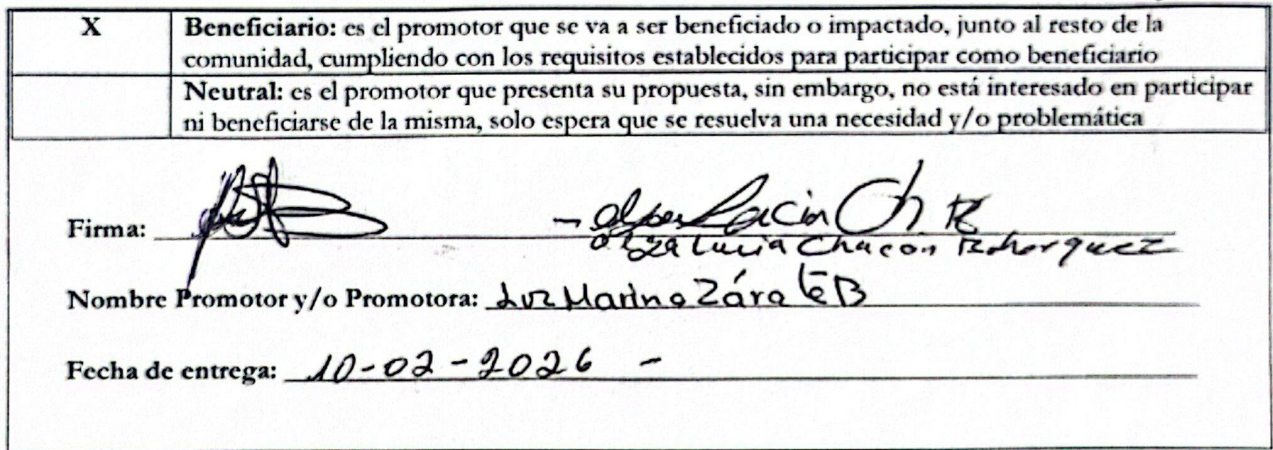 X
Beneficiario: es el promotor que se va a ser beneficiado o impactado, junto al resto de la
comunidad, cumpliendo con los requisitos establecidos para participar como beneficiario
Neutral: es el promotor que presenta su propuesta, sin embargo, no está interesado en participar
ni beneficiarse de la misma, solo espera que se resuelva una necesidad y/o problemática
Lucia Ch R
Firma:
Lucia Chacon
Nombre Promotor y/o Promotora: Luz Marina Zárate B
Fecha de entrega: 10-02-2026 -